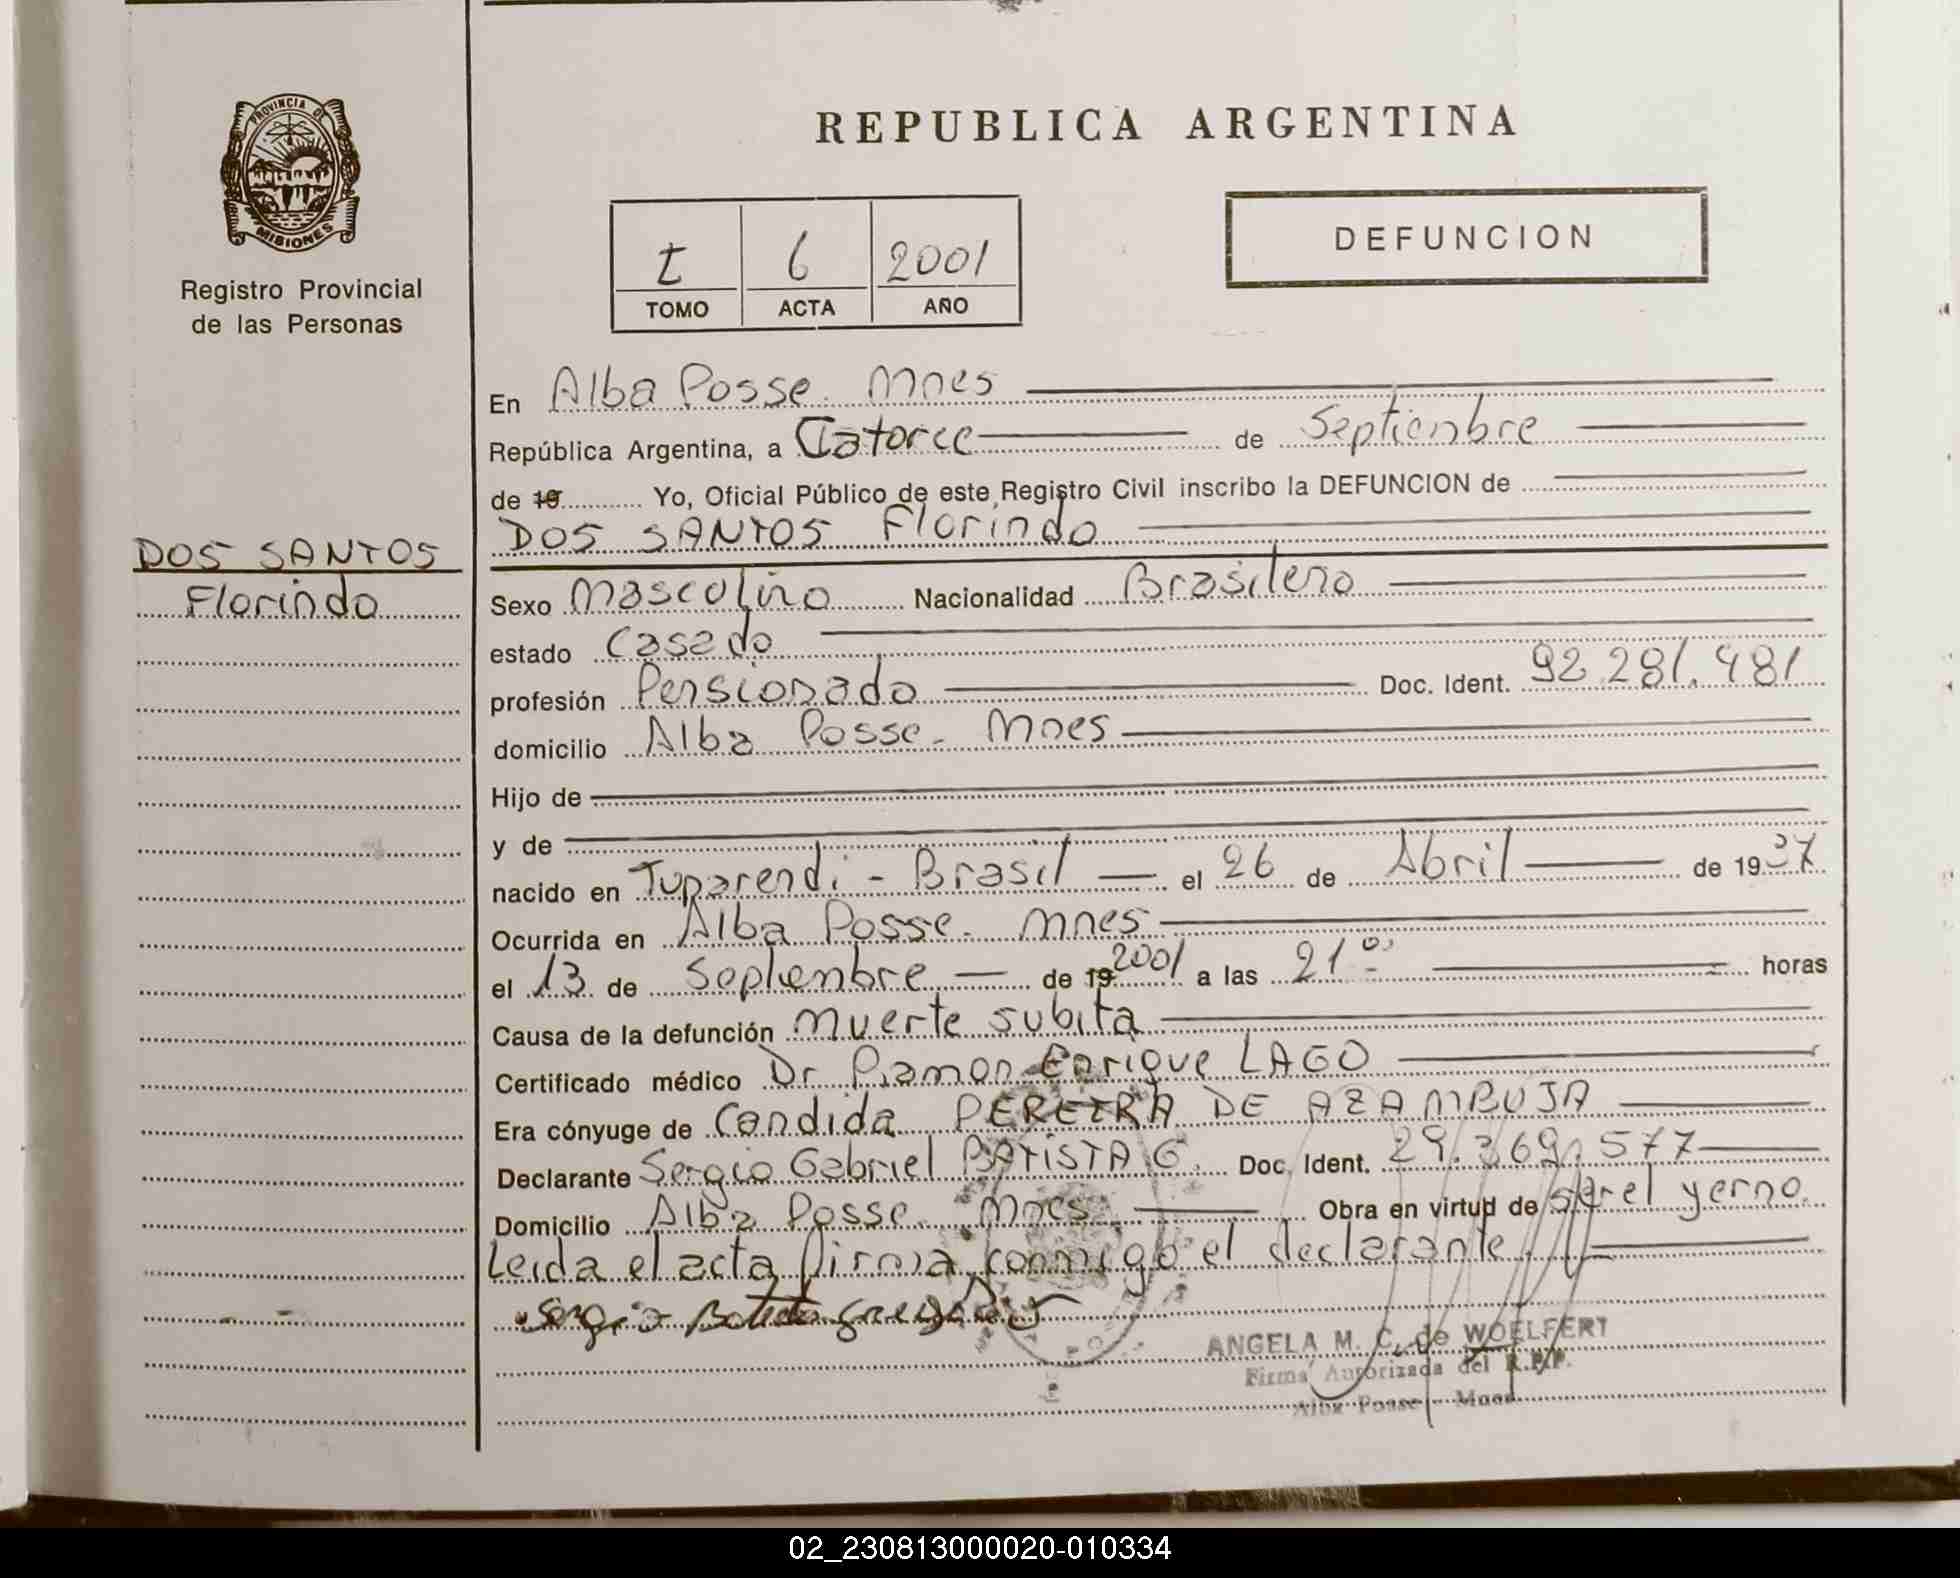 PROVINCIA DE
MISIONES
Registro Provincial
de las Personas
DOS SANTOS
Florindo
REPUBLICA ARGENTINA
t 6 2001
TOMO ACTA AÑO
DEFUNCION
En Alba Posse. Mnes
República Argentina, a Catorce de Septienbre
de 19 Yo, Oficial Público de este Registro Civil inscribo la DEFUNCION de
DOS SANTOS Florindo
Sexo Mascolino Nacionalidad Brasilero
estado Casado
profesión Pensionado Doc. Ident. 92.281.481
domicilio Alba Posse. Mnes
Hijo de
y de
nacido en Tuparendi - Brasil el 26 de Abril de 1937
Ocurrida en Alba Posse. Mnes
el 13 de Septienbre de 19 2001 a las 21 horas
Causa de la defunción Muerte subita
Certificado médico Dr Ramon Enrique LAGO
Era cónyuge de Candida PEREIRA DE AZAMBUJA
Declarante Sergio Gabriel BATISTA G. Doc. Ident. 29.369.577
Domicilio Alba Posse. Mnes Obra en virtud de ser el yerno.
Leida el acta firma conmigo el declarante
Sergio
ANGELA M. C. de WOELFERT
Firma Autorizada del R.P.P.
Alba Posse - Mnes.
02_230813000020-010334